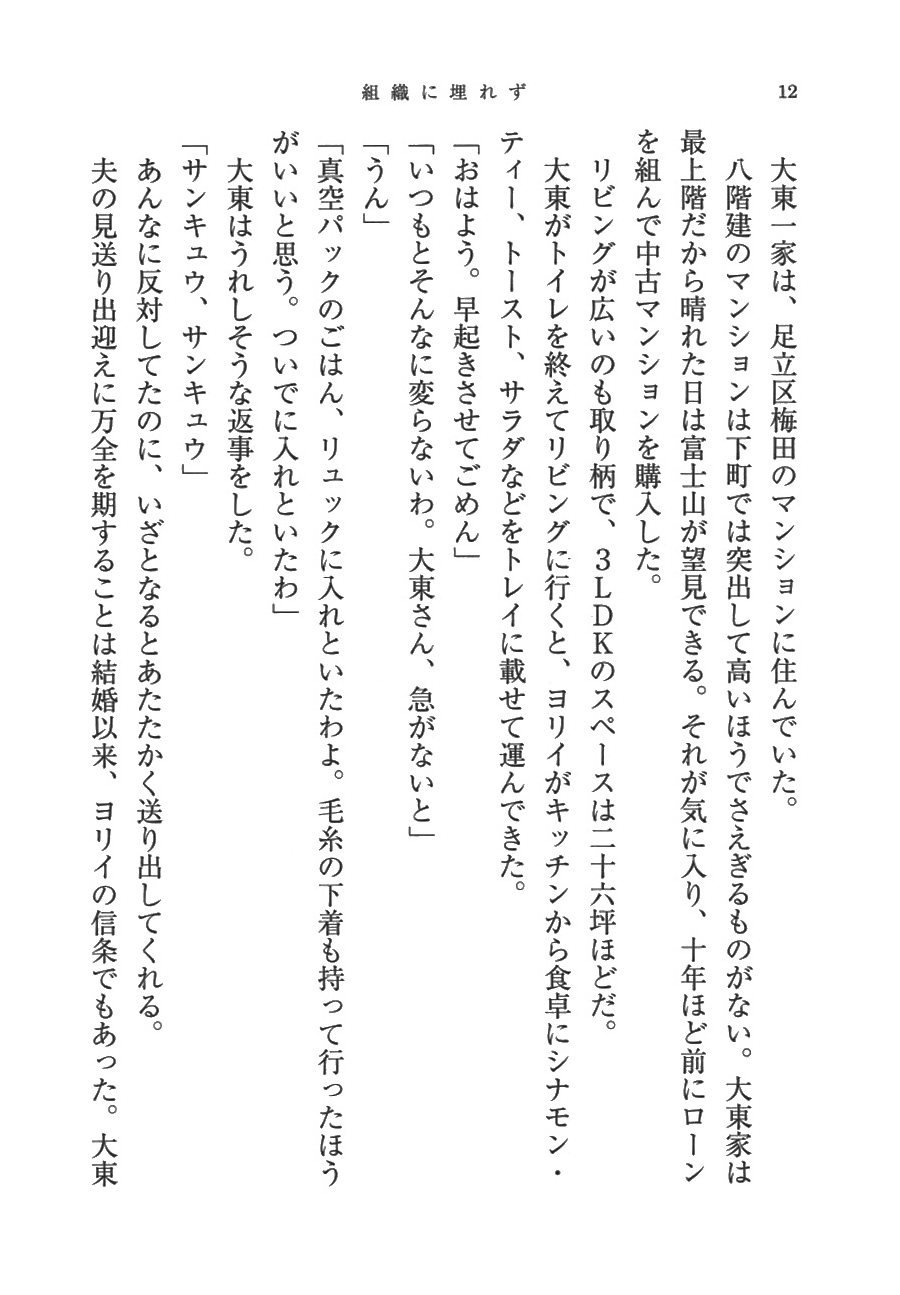 組織に埋れず
12
大東一家は、足立区梅田のマンションに住んでいた。
八階建のマンションは下町では突出して高いほうでさえぎるものがない。大東家は
最上階だから晴れた日は富士山が望見できる。それが気に入り、十年ほど前にローン
を組んで中古マンションを購入した。
リビングが広いのも取り柄で、3LDKのスペースは二十六坪ほどだ。
大東がトイレを終えてリビングに行くと、ヨリイがキッチンから食卓にシナモン・
ティー、トースト、サラダなどをトレイに載せて運んできた。
「おはよう。早起きさせてごめん」
「いつもとそんなに変らないわ。大東さん、急がないと」
「うん」
「真空パックのごはん、リュックに入れといたわよ。毛糸の下着も持って行ったほう
がいいと思う。ついでに入れといたわ」
大東はうれしそうな返事をした。
「サンキュウ、サンキュウ」
あんなに反対してたのに、いざとなるとあたたかく送り出してくれる。
夫の見送り出迎えに万全を期することは結婚以来、ヨリイの信条でもあった。大東